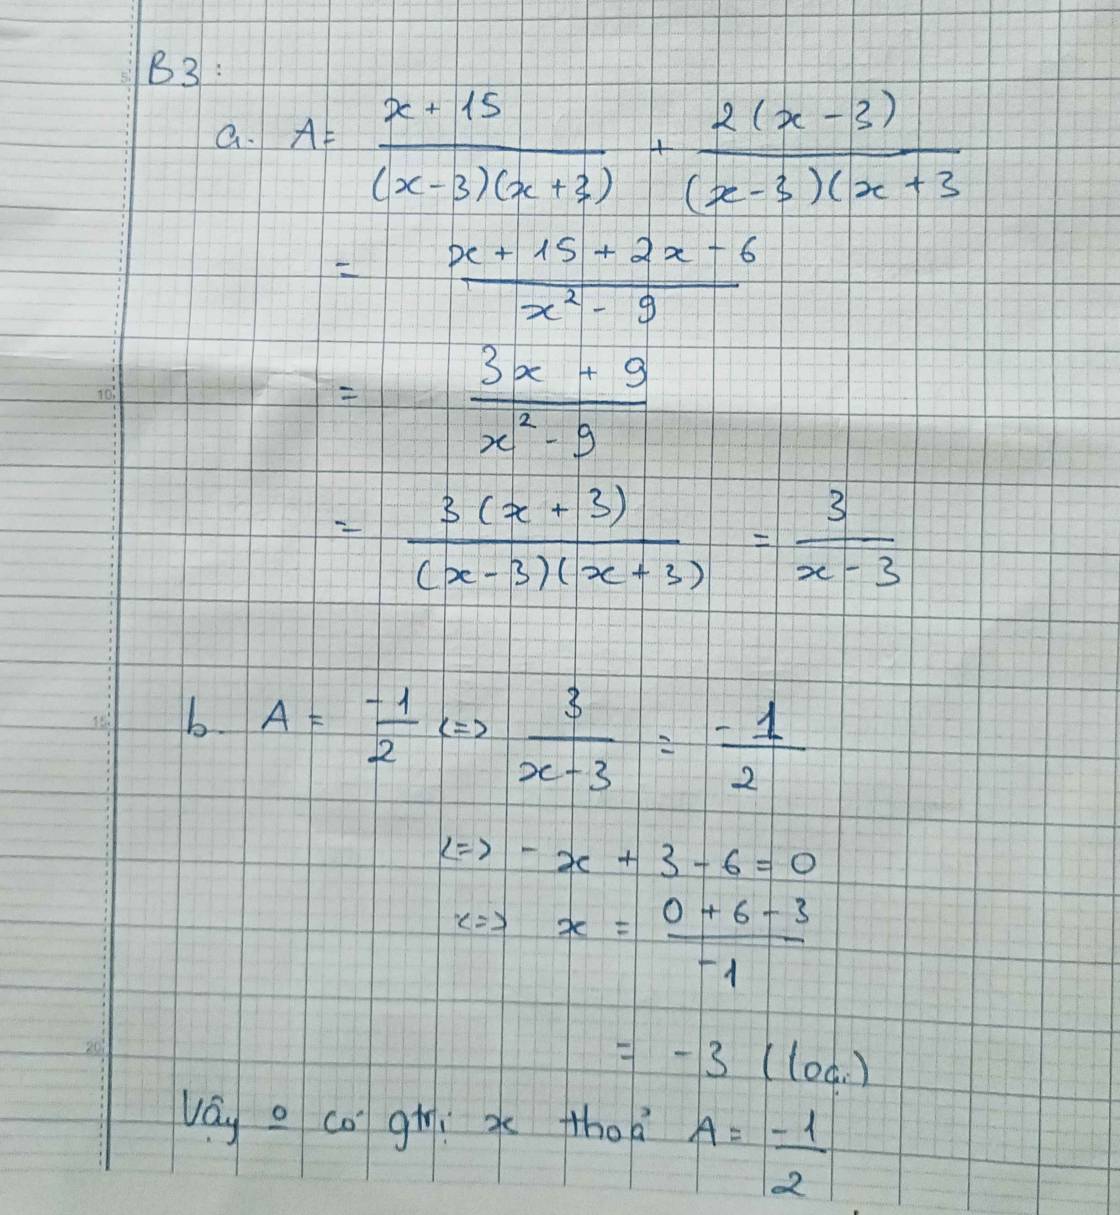 B3:
a. A = \frac{x + 15}{(x - 3)(x + 3)} + \frac{2(x - 3)}{(x - 3)(x + 3}
= \frac{x + 15 + 2x - 6}{x^2 - 9}
= \frac{3x + 9}{x^2 - 9}
= \frac{3(x + 3)}{(x - 3)(x + 3)} = \frac{3}{x - 3}
b. A = \frac{-1}{2} <=> \frac{3}{x - 3} = \frac{-1}{2}
<=> -x + 3 - 6 = 0
<=> x = \frac{0 + 6 - 3}{-1}
= -3 (loại)
Vậy o có gtrị x thoả A = \frac{-1}{2}
5
10
15
20